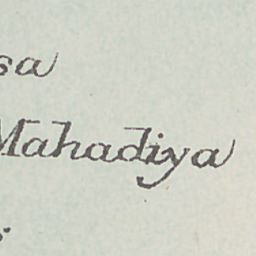 sa
Mahadiya